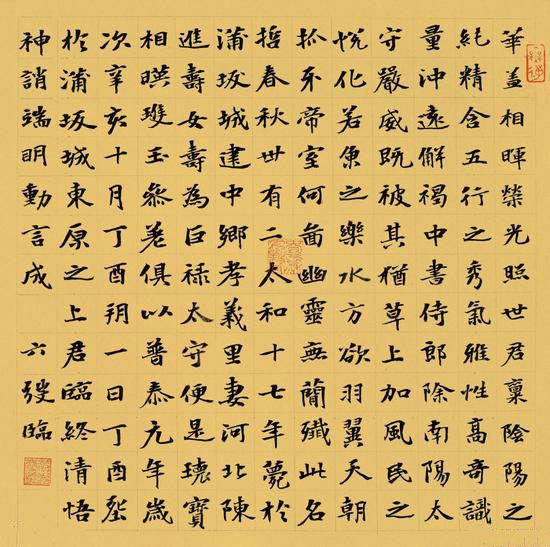 華盖相暉榮光照世君稟陰陽之
純精含五行之秀氣雅性高奇識
量沖遠解褐中書侍郎除南陽太
守嚴威既被其猶草上加風民之
悅化若魚之樂水方欲羽翼天朝
抓牙帝室何啚幽靈無簡殲此名
哲春秋卅有二太和十七年薨於
蒲坂城建中鄉孝義里妻河北陳
進壽女壽為巨祿太守便是瓌寶
相暎瓊玉參差俱以普泰元年歲
次辛亥十月丁酉朔一日丁酉塟
於蒲坂城東原之上君臨終清悟
神誚端明動言成 六發臨